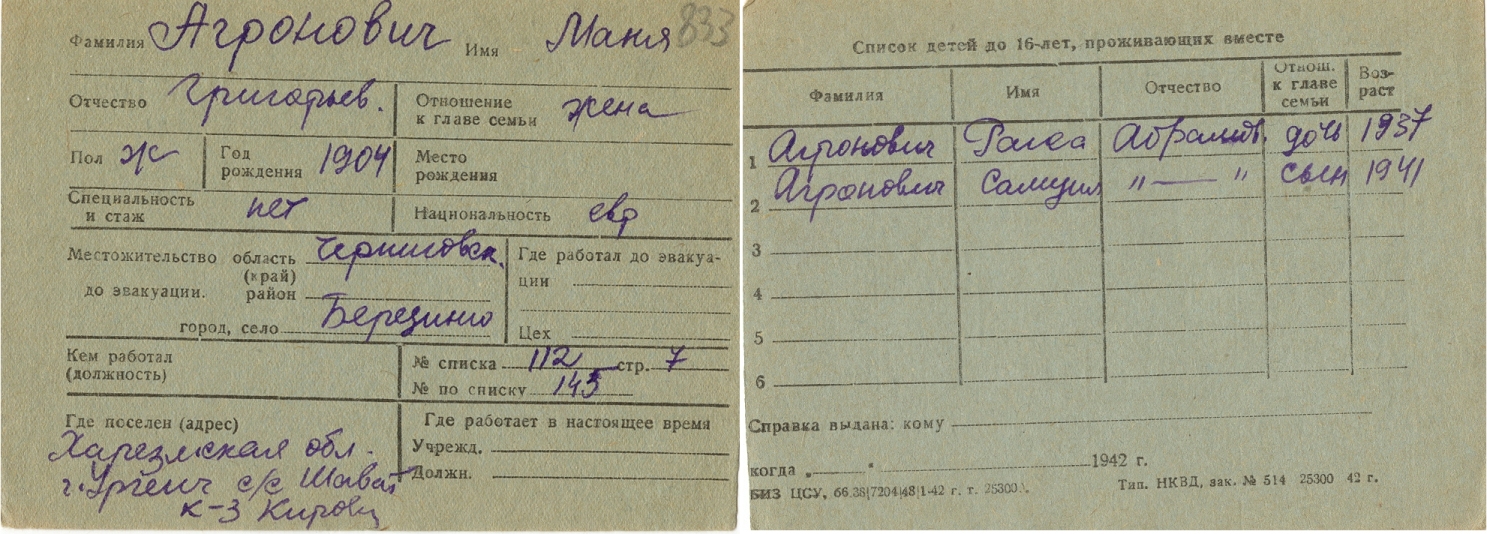 Фамилия Агронович Имя Маня 833
Отчество Григорьев. Отношение к главе семьи жена
Пол ж Год рождения 1904 Место рождения
Специальность и стаж нет Национальность евр
Местожительство до эвакуации. область (край) Черниговск.
район
город, село Березинно
Где работал до эвакуации
Цех
Кем работал (должность)
№ списка 112 стр. 7
№ по списку 145
Где поселен (адрес)
Харезмская обл.
г. Ургенч с/с Шават
к-з Кирова
Где работает в настоящее время
Учрежд.
Должн.
Список детей до 16-лет, проживающих вместе
Фамилия Имя Отчество Отнош. к главе семьи Возраст
1 Агронович Раиса Абрамов. дочь 1937
2 Агронович Самуил " — " сын 1941
3
4
5
6
Справка выдана: кому
когда „ “ 1942 г.
БИЗ ЦСУ, 66.38|7204|48|1-42 г. т. 25300. Тип. НКВД, зак. № 514 25300 42 г.